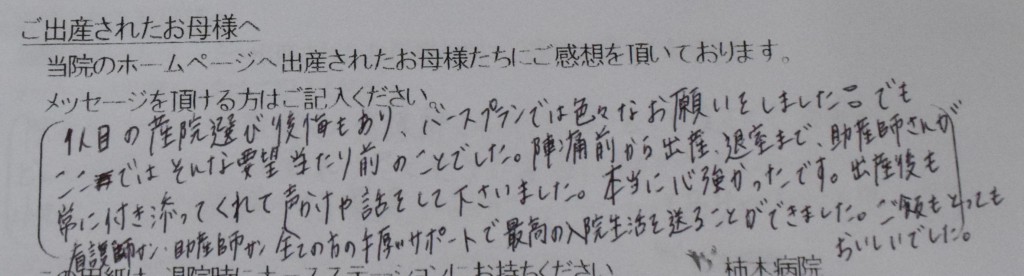 ご出産されたお母様へ
当院のホームページへ出産されたお母様たちにご感想を頂いております。
メッセージを頂ける方はご記入ください。
1人目の産院選び後悔もあり、バースプランでは色々なお願いをしました。でも
ここではそんな要望当たり前のことでした。陣痛前から出産、退室まで、助産師さんが
常に付き添ってくれて声かけや話をして下さいました。本当に心強かったです。出産後も
看護師サン・助産師サン全ての方の手厚いサポートで最高の入院生活を送ることができました。ご飯もとっても
おいしいでした。
この用紙は、退院時にナースステーションにお持ちください
柿木病院